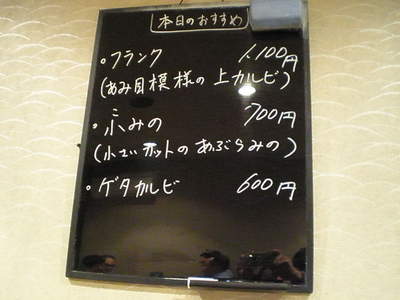 本日のおすすめ
・フランク 1,100円
(あみ目模様の上カルビ)
・小みの 700円
(小さいカットのあぶらみの)
・ゲタカルビ 600円